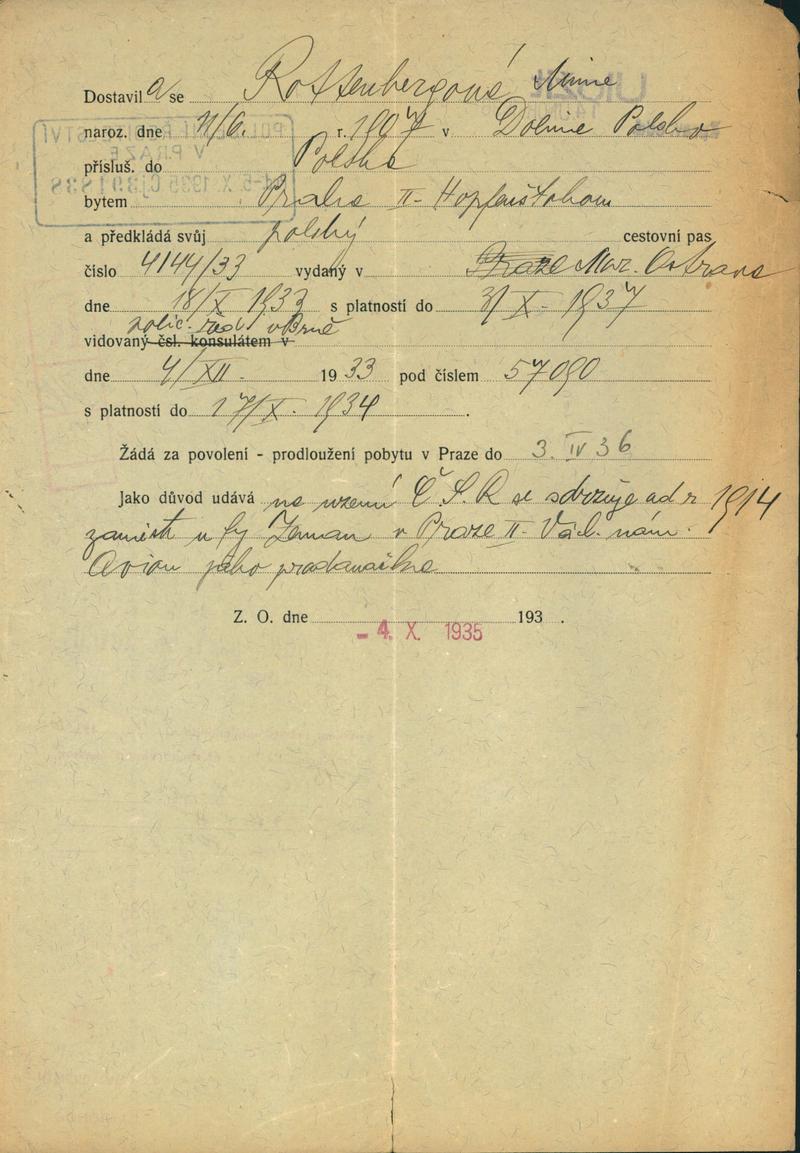 Dostavil a se Rottenbergová Minne
naroz. dne 11/6. r. 1907 v Dolině Polsko
přísluš. do Polska
bytem Praha II - Hopfenštokova
a předkládá svůj polský cestovní pas
číslo 4144/33 vydaný v Praze Mor. Ostrava
dne 18/X 1933 s platností do 31 X. 1937
polic. řed. v Brně
vidovaný čsl. konsulátem v
dne 4/XII. 1933 pod číslem 57090
s platností do 17/X. 1934 .
Žádá za povolení - prodloužení pobytu v Praze do 3. IV 36
Jako důvod udává na území Č.S.R se zdržuje od r 1914
zaměst u fy Zeman v Praze II. Václ. nám.
Avion jako prodavačka
Z. O. dne 193 .
- 4. X. 1935